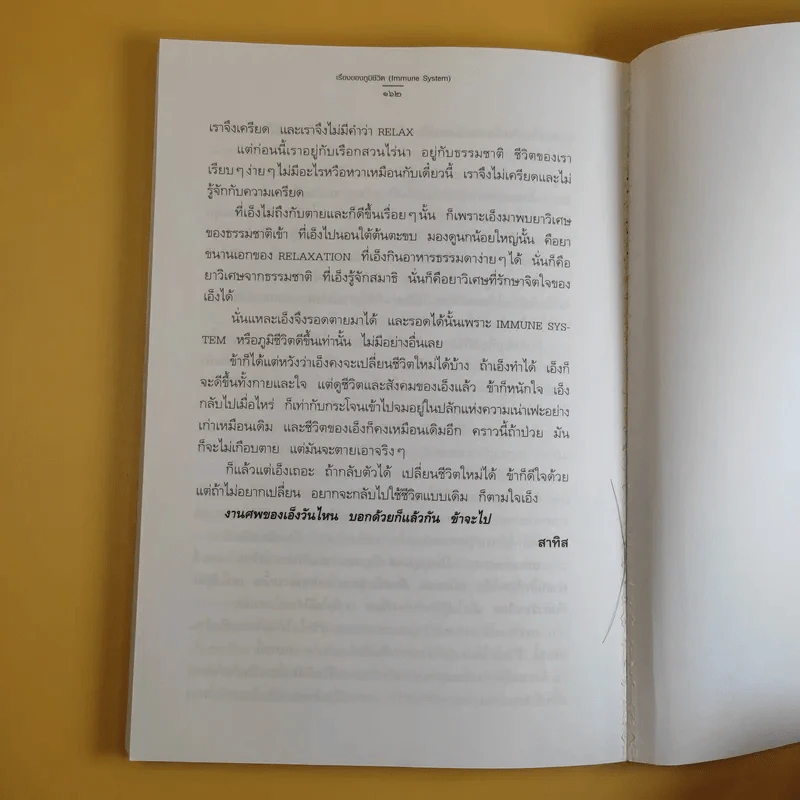 เรื่องของภูมิชีวิต (Immune System)
๑๖๒
เราจึงเครียด และเราจึงไม่มีคำว่า RELAX
แต่ก่อนนี้เราอยู่กับเรือกสวนไร่นา อยู่กับธรรมชาติ ชีวิตของเรา
เรียบๆ ง่ายๆ ไม่มีอะไรหรือหวาเหมือนกับเดี๋ยวนี้ เราจึงไม่เครียดและไม่
รู้จักกับความเครียด
ที่เอ็งไม่ถึงกับตายและก็ดีขึ้นเรื่อยๆ นั้น ก็เพราะเอ็งมาพบยาวิเศษ
ของธรรมชาติเข้า ที่เอ็งไปนอนใต้ต้นตะขบ มองดูนกน้อยใหญ่นั้น คือยา
ขนานเอกของ RELAXATION ที่เอ็งกินอาหารธรรมดาง่ายๆ ได้ นั่นก็คือ
ยาวิเศษจากธรรมชาติ ที่เอ็งรู้จักสมาธิ นั่นก็คือยาวิเศษที่รักษาจิตใจของ
เอ็งได้
นั่นแหละเอ็งจึงรอดตายมาได้ และรอดได้นั้นเพราะ IMMUNE SYS-
TEM หรือภูมิชีวิตดีขึ้นเท่านั้น ไม่มีอย่างอื่นเลย
ข้าก็ได้แต่หวังว่าเอ็งคงจะเปลี่ยนชีวิตใหม่ได้บ้าง ถ้าเอ็งทำได้ เอ็งก็
จะดีขึ้นทั้งกายและใจ แต่ดูชีวิตและสังคมของเอ็งแล้ว ข้าก็หนักใจ เอ็ง
กลับไปเมื่อไหร่ ก็เท่ากับกระโจนเข้าไปจมอยู่ในปลักแห่งความเน่าเฟะอย่าง
เก่าเหมือนเดิม และชีวิตของเอ็งก็คงเหมือนเดิมอีก คราวนี้ถ้าป่วย มัน
ก็จะไม่เกือบตาย แต่มันจะตายเอาจริงๆ
ก็แล้วแต่เอ็งเถอะ ถ้ากลับตัวได้ เปลี่ยนชีวิตใหม่ได้ ข้าก็ดีใจด้วย
แต่ถ้าไม่อยากเปลี่ยน อยากจะกลับไปใช้ชีวิตแบบเดิม ก็ตามใจเอ็ง
งานศพของเอ็งวันไหน บอกด้วยก็แล้วกัน ข้าจะไป
สาทิส